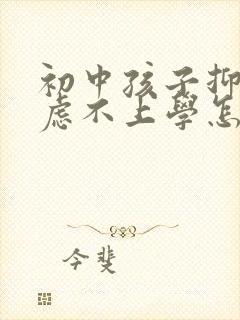 初中孩子抑
虑不上学怎
今斐